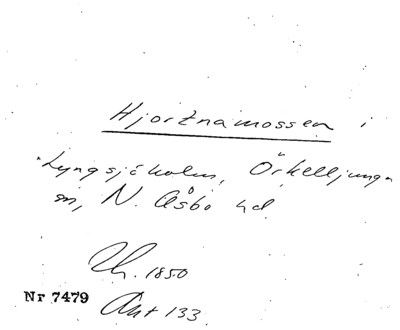 Hjortnamossen i
Lyngsjöholm, Örkelljunga
sn, N. Åsbo hd
Uh. 1850
Nr 7479
Ant 133